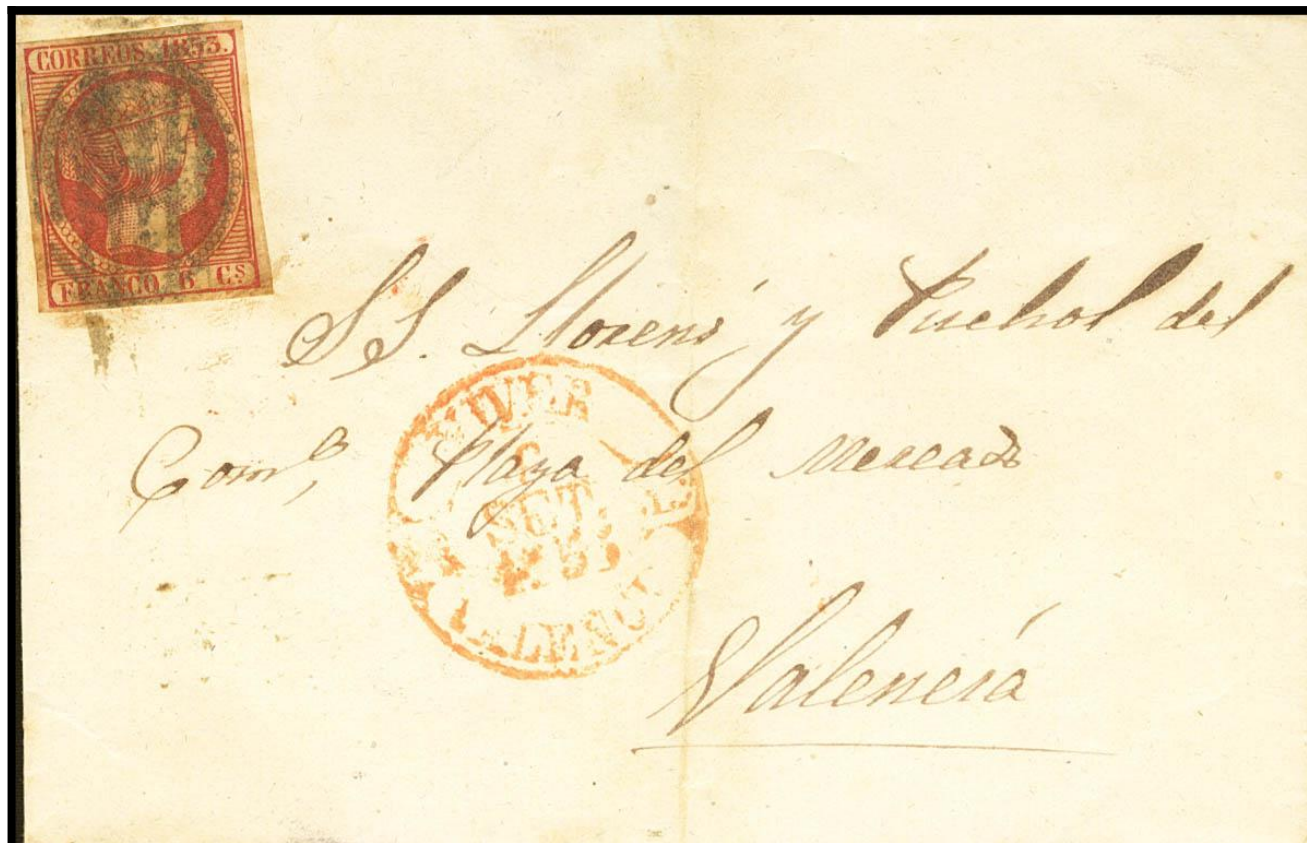 CORREOS. 1853.
FRANCO. 6 Cs
SS. Llorens y Puchol del
Come, Plaza del Mercado
VIVER
SET.
VALENCIA
Valencia